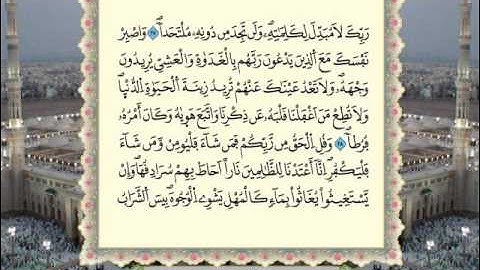 رَبِّكَ لَا مُبَدِّلَ لِكَلِمَٰتِهِۦ وَلَن تَجِدَ مِن دُونِهِۦ مُلْتَحَدًا ٢٧ وَٱصْبِرْ
نَفْسَكَ مَعَ ٱلَّذِينَ يَدْعُونَ رَبَّهُم بِٱلْغَدَوٰةِ وَٱلْعَشِيِّ يُرِيدُونَ
وَجْهَهُۥ وَلَا تَعْدُ عَيْنَاكَ عَنْهُمْ تُرِيدُ زِينَةَ ٱلْحَيَوٰةِ ٱلدُّنْيَا
وَلَا تُطِعْ مَنْ أَغْفَلْنَا قَلْبَهُۥ عَن ذِكْرِنَا وَٱتَّبَعَ هَوَىٰهُ وَكَانَ أَمْرُهُۥ
فُرُطًا ٢٨ وَقُلِ ٱلْحَقُّ مِن رَّبِّكُمْ فَمَن شَآءَ فَلْيُؤْمِن وَّمَن شَآءَ
فَلْيَكْفُرْ إِنَّآ أَعْتَدْنَا لِلظَّٰلِمِينَ نَارًا أَحَاطَ بِهِمْ سُرَادِقُهَا وَإِن
يَسْتَغِيثُوا۟ يُغَاثُوا۟ بِمَآءٍ كَٱلْمُهْلِ يَشْوِى ٱلْوُجُوهَ بِئْسَ ٱلشَّرَابُ